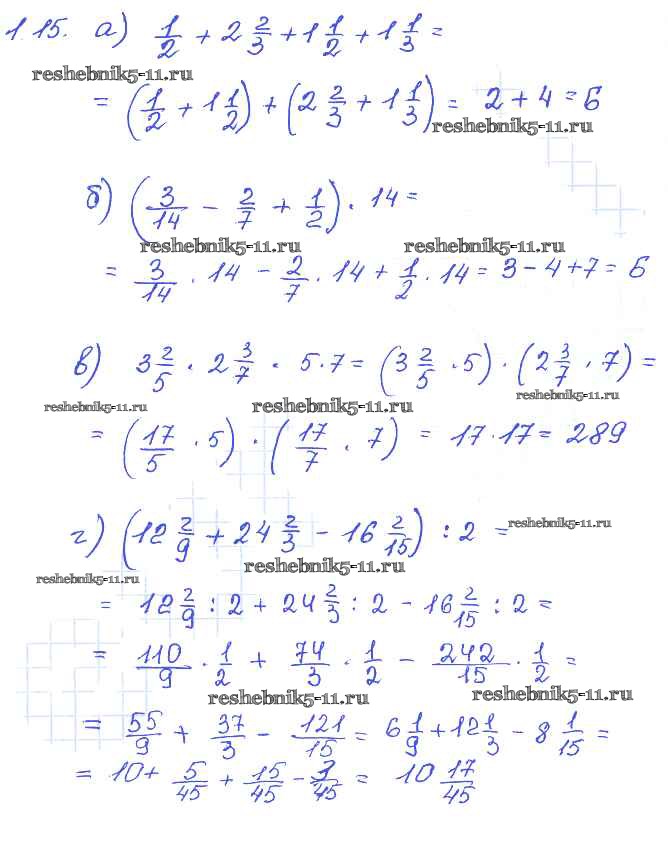 1.15. а) 1/2 + 2 2/3 + 1 1/2 + 1 1/3 =
reshebnik5-11.ru
= (1/2 + 1 1/2) + (2 2/3 + 1 1/3) = 2 + 4 = 6
reshebnik5-11.ru
б) (3/14 - 2/7 + 1/2) · 14 =
reshebnik5-11.ru reshebnik5-11.ru
= 3/14 · 14 - 2/7 · 14 + 1/2 · 14 = 3 - 4 + 7 = 6
в) 3 2/5 · 2 3/7 · 5 · 7 = (3 2/5 · 5) · (2 3/7 · 7) =
reshebnik5-11.ru reshebnik5-11.ru reshebnik5-11.ru
= (17/5 · 5) · (17/7 · 7) = 17 · 17 = 289
г) (12 2/9 + 24 2/3 - 16 2/15) : 2 =
reshebnik5-11.ru
reshebnik5-11.ru reshebnik5-11.ru
= 12 2/9 : 2 + 24 2/3 : 2 - 16 2/15 : 2 =
= 110/9 · 1/2 + 74/3 · 1/2 - 242/15 · 1/2 =
reshebnik5-11.ru reshebnik5-11.ru
= 55/9 + 37/3 - 121/15 = 6 1/9 + 12 1/3 - 8 1/15 =
= 10 + 5/45 + 15/45 - 3/45 = 10 17/45